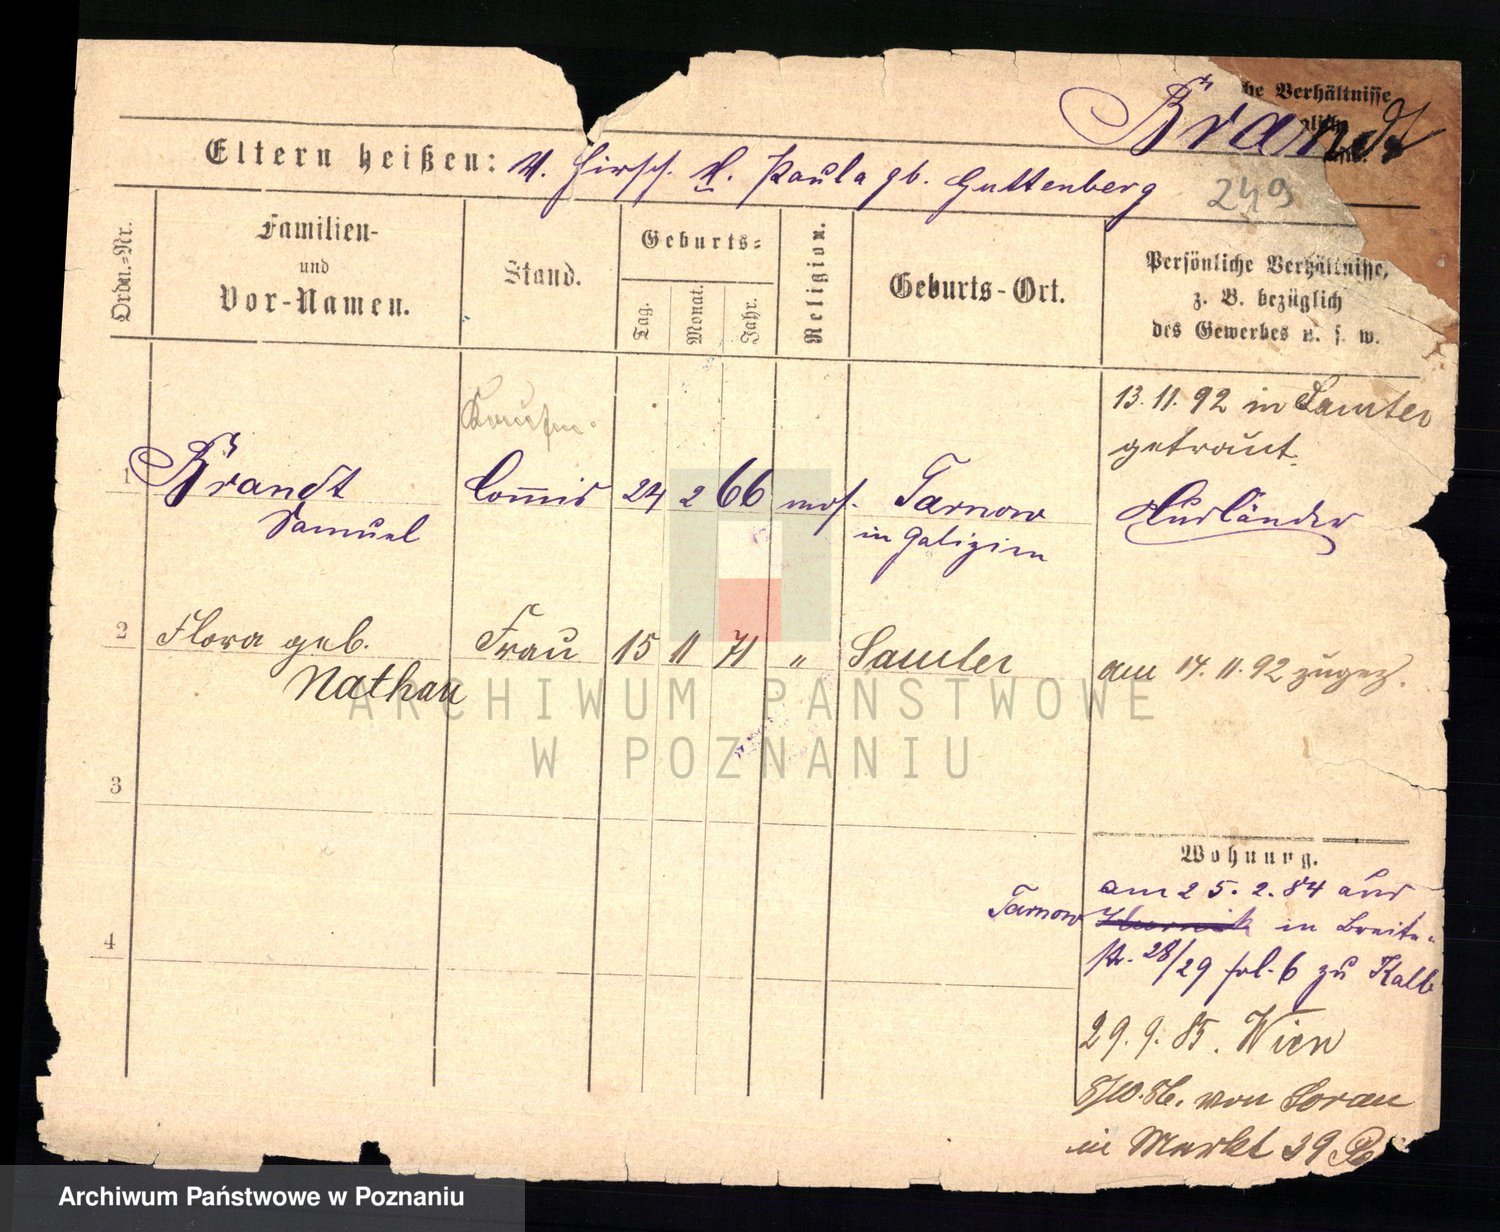 he Verhältnisse
Brandt
Eltern heißen: V. Hirsch. M. Paula gb. Guttenberg
249
Ordn.-Nr.
Familien-
und
Vor-Namen.
Stand.
Geburts-
Tag.
Monat.
Jahr.
Religion.
Geburts-Ort.
Persönliche Verhältnisse,
z. B. bezüglich
des Gewerbes u. s. w.
13. 11. 92 in Samter
getraut.
Kaufm.
1 Brandt Commis 24 2 66 mos. Tarnow Ausländer
Samuel in Galizien
2 Flora geb. Frau 15 11 71 " Samter am 14. 11. 92 zugez.
Nathan
3
Wohnung.
am 25. 2. 84 aus
Tarnow in Breite-
4
str. 28/29 bei 6 zu Kalb
29. 9. 85. Wien
8/10. 86. von Sorau
in Markt 39
ARCHIWUM PAŃSTWOWE
W POZNANIU
Archiwum Państwowe w Poznaniu